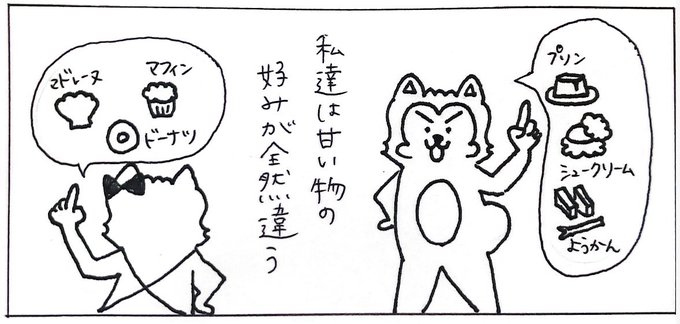 プリン
シュークリーム
ようかん
私達は甘い物の
好みが全然違う
マフィン
マドレーヌ
ドーナツ